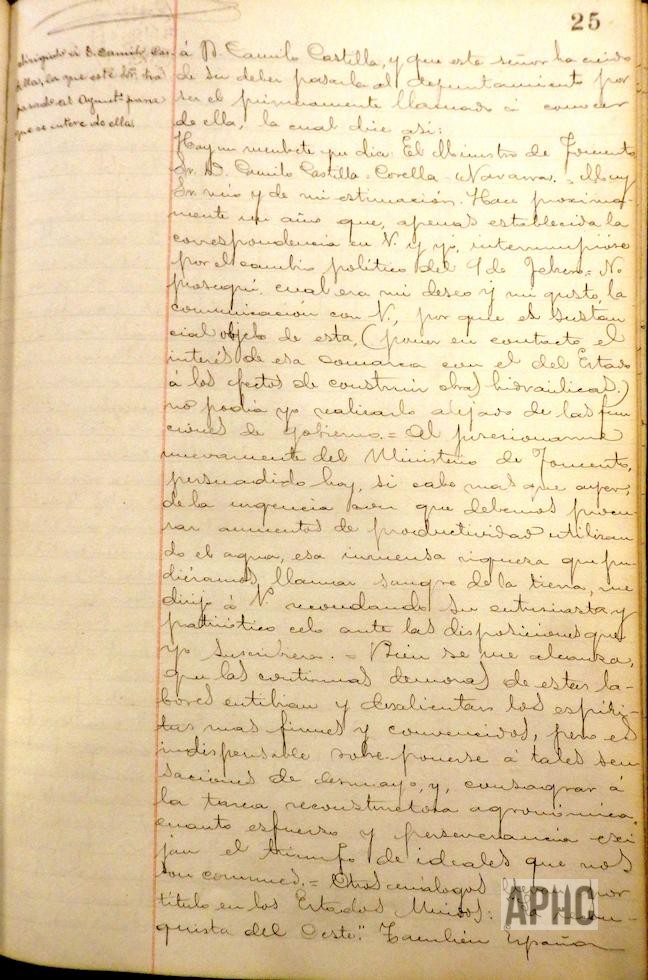 25
dirigido á D. Camilo Cas-
tilla, la que este Sr. ha
pasado al Ayunt.º para
que se entere de ella.
á D. Camilo Castilla, y que este señor ha creido
de su deber pasarla al Ayuntamiento por
ser el primeramente llamado á conocer
de ella, la cual dice asi:
Hay un membrete que dice: El Ministro de Fomento
Sr. D. Camilo Castilla = Corella = Navarra. = Muy
Sr. mio y de mi estimación. Hace proxima-
mente un año que, apenas establecida la
correspondencia en V. y yo, interrumpiose
por el cambio politico del 9 de Febrero = No
proseguí, cual era mi deseo y mi gusto, la
comunicación con V., por que el sustan-
cial objeto de esta, (poner en contacto el
interés de esa comarca con el del Estado
á los efectos de construir obras hidraúlicas)
no podia yo realizarlo alejado de las fun-
ciones de gobierno. = Al posesionarme
nuevamente del Ministerio de Fomento,
persuadido hoy, si cabe mas que ayer,
de la urgencia con que debemos procu-
rar aumentos de productividad utilizan-
do el agua, esa inmensa riqueza que pu-
diéramos llamar sangre de la tierra, me
dirijo á V. recordando su entusiasta y
patriótico celo ante las disposiciones que
yo suscribiera. = Bien se me alcanza,
que las continuas demoras de estas la-
bores entibian y desalientan los espiri-
tus mas firmes y convencidos, pero es
indispensable sobre-ponerse á tales sen-
saciones de desmayo, y, consagrar á
la tarea reconstructora agronómica,
cuanto esfuerzo y perseverancia exi-
jan el triunfo de ideales que nos
son comunes. = Otros análogos por
título en los Estados Unidos: "La recon-
quista del Oeste". Tambien España
APHC